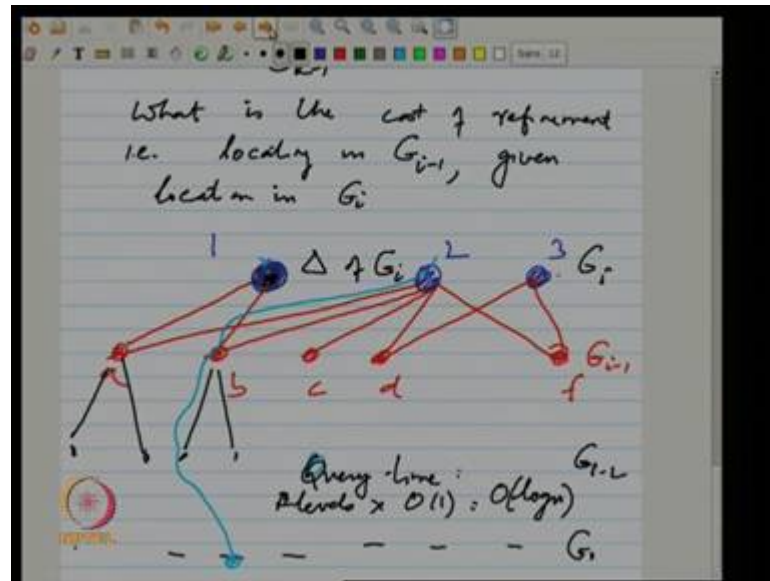 K-1
What is the cost of refinement
i.e. locating in Gi-1, given
location in Gi
1 Δ of Gi 2 3 Gi
b c d f Gi-1
Gi-2
Query time :
#levels x O(1) : O(logn)
G1